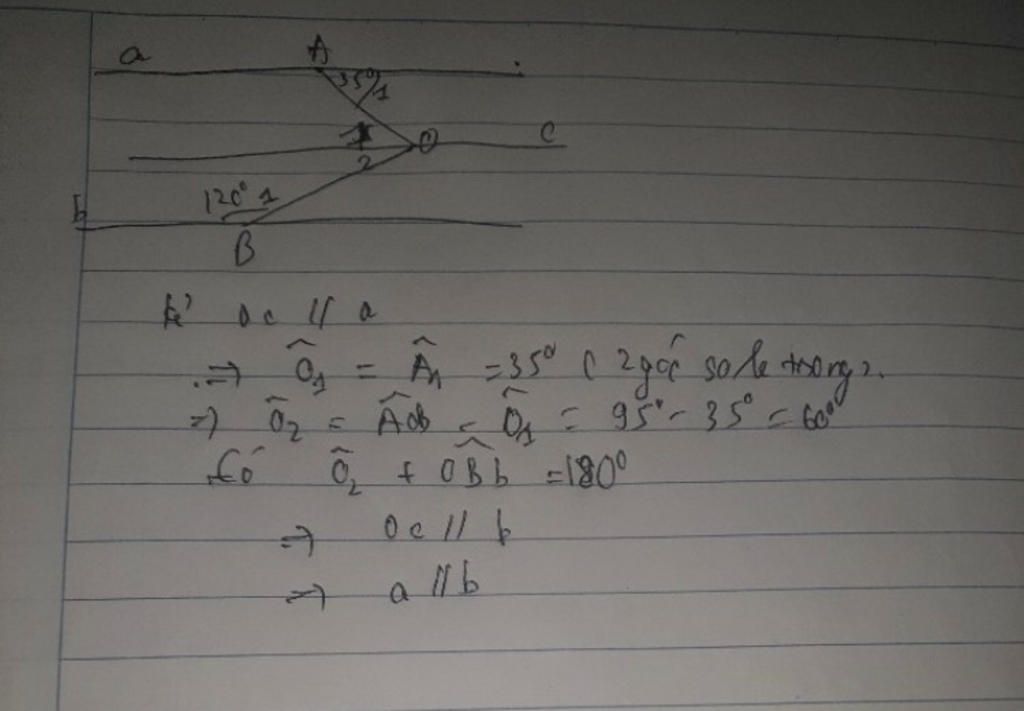 a A
35° 1
1 O c
2
120° 1
b
B
kẻ oc // a
⇒ Ô₁ = Â₁ = 35° ( 2 góc so le trong ).
⇒ Ô₂ = AOB - Ô₁ = 95° - 35° = 60°
Có Ô₂ + OBb = 180°
⇒ oc // b
⇒ a // b